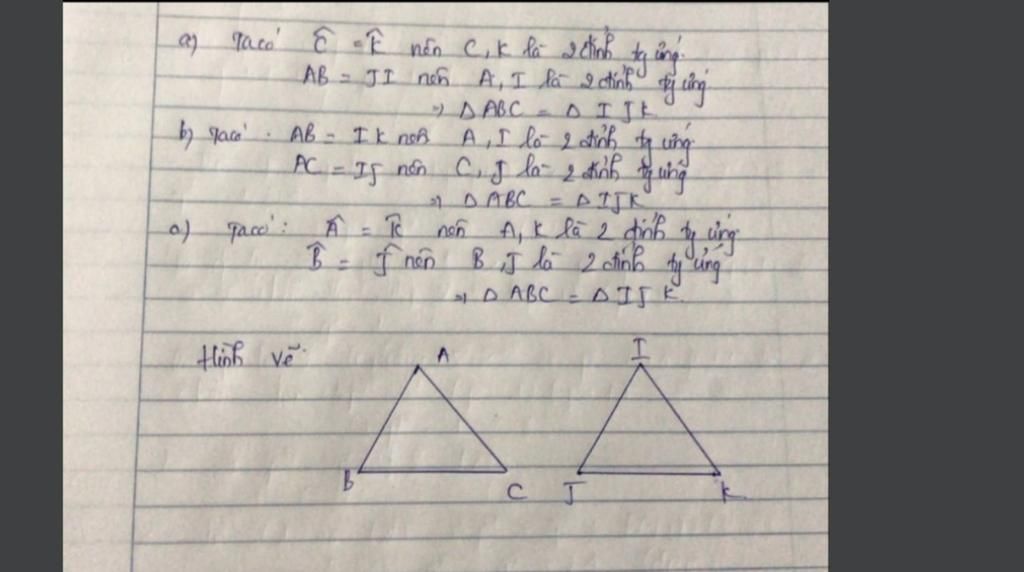 a) Ta có Ĉ = K̂ nên C, K là 2 đỉnh tg ứng.
AB = JI nên A, I là 2 đỉnh tg ứng
=> Δ ABC = Δ I J K
b) Ta có: AB = I K nên A, I là 2 đỉnh tg ứng
AC = IJ nên C, J là 2 đỉnh tg ứng
=> Δ ABC = Δ IJK
c) Ta có: Â = K̂ nên A, K là 2 đỉnh tg ứng
B̂ = Ĵ nên B, J là 2 đỉnh tg ứng
=> Δ ABC = Δ IJ K
Hình vẽ:
A
I
B
C
J
K